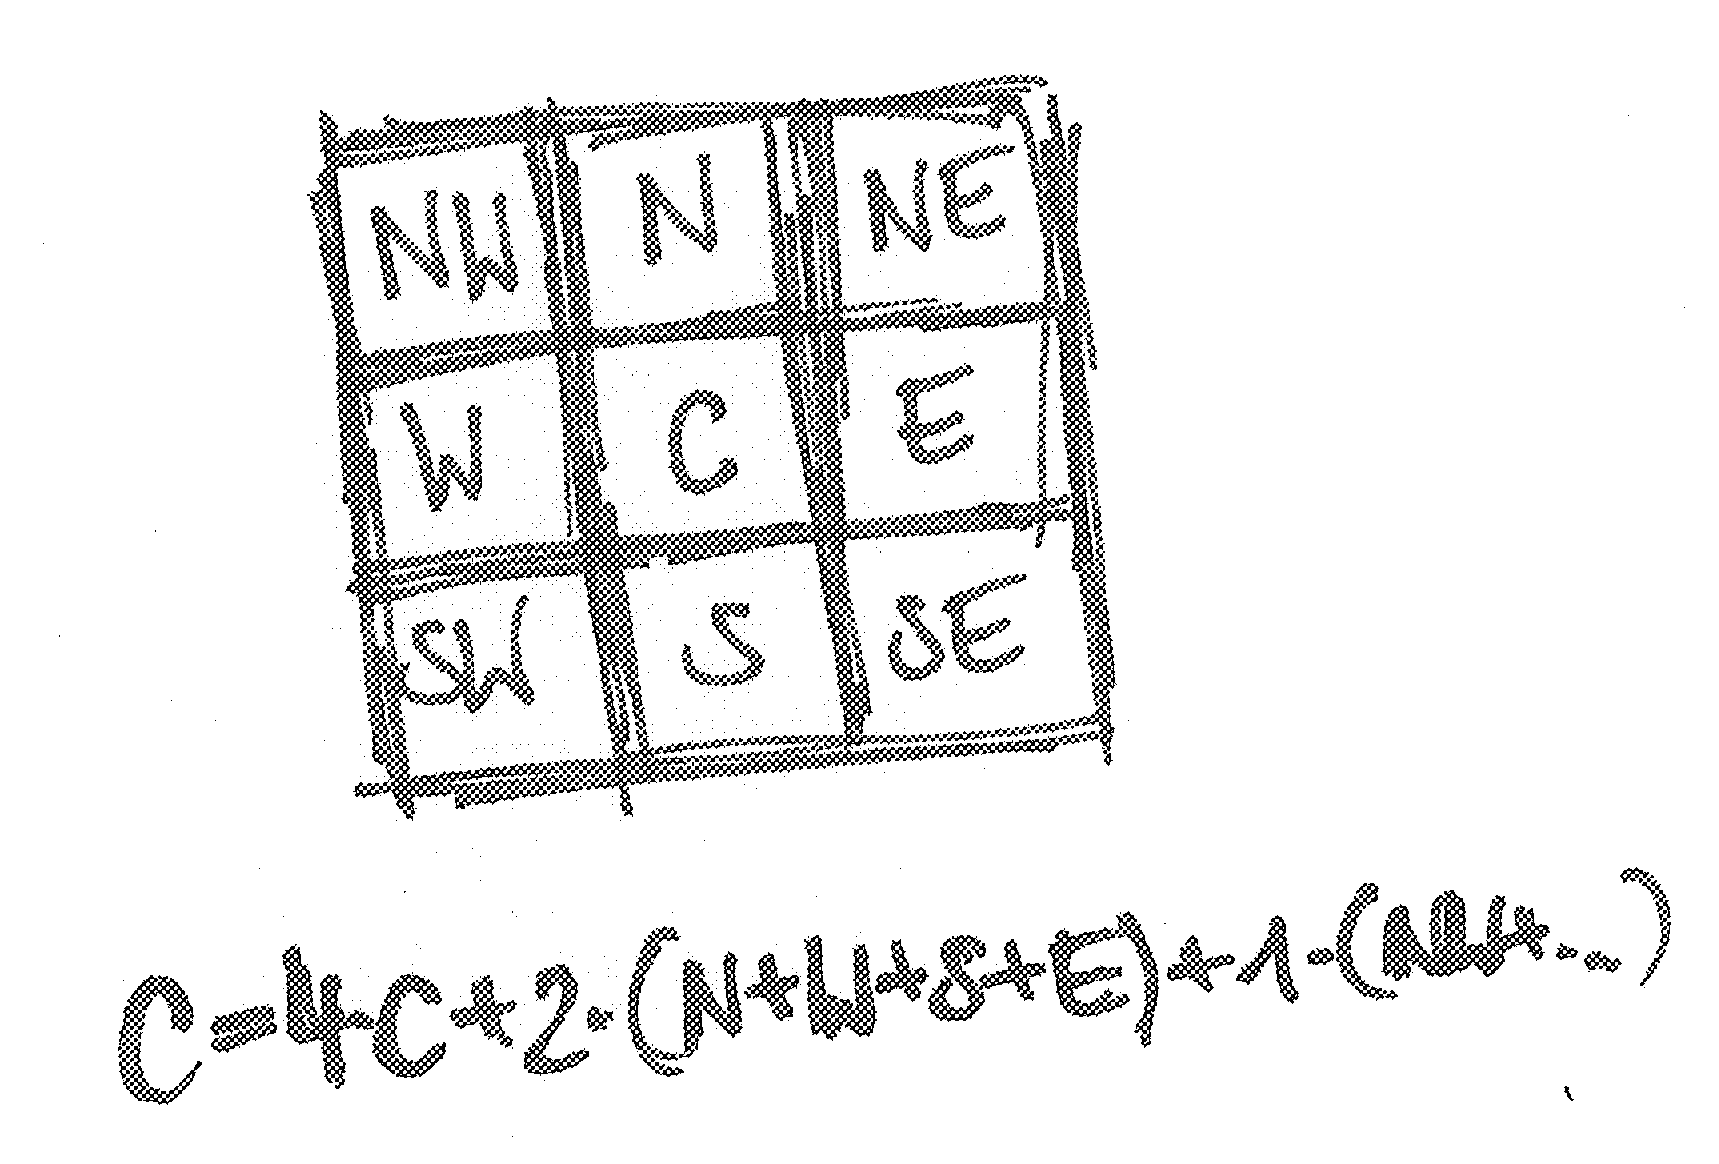 NW N NE
W C E
SW S SE
C=4·C+2·(N+W+S+E)+1·(NW+...)